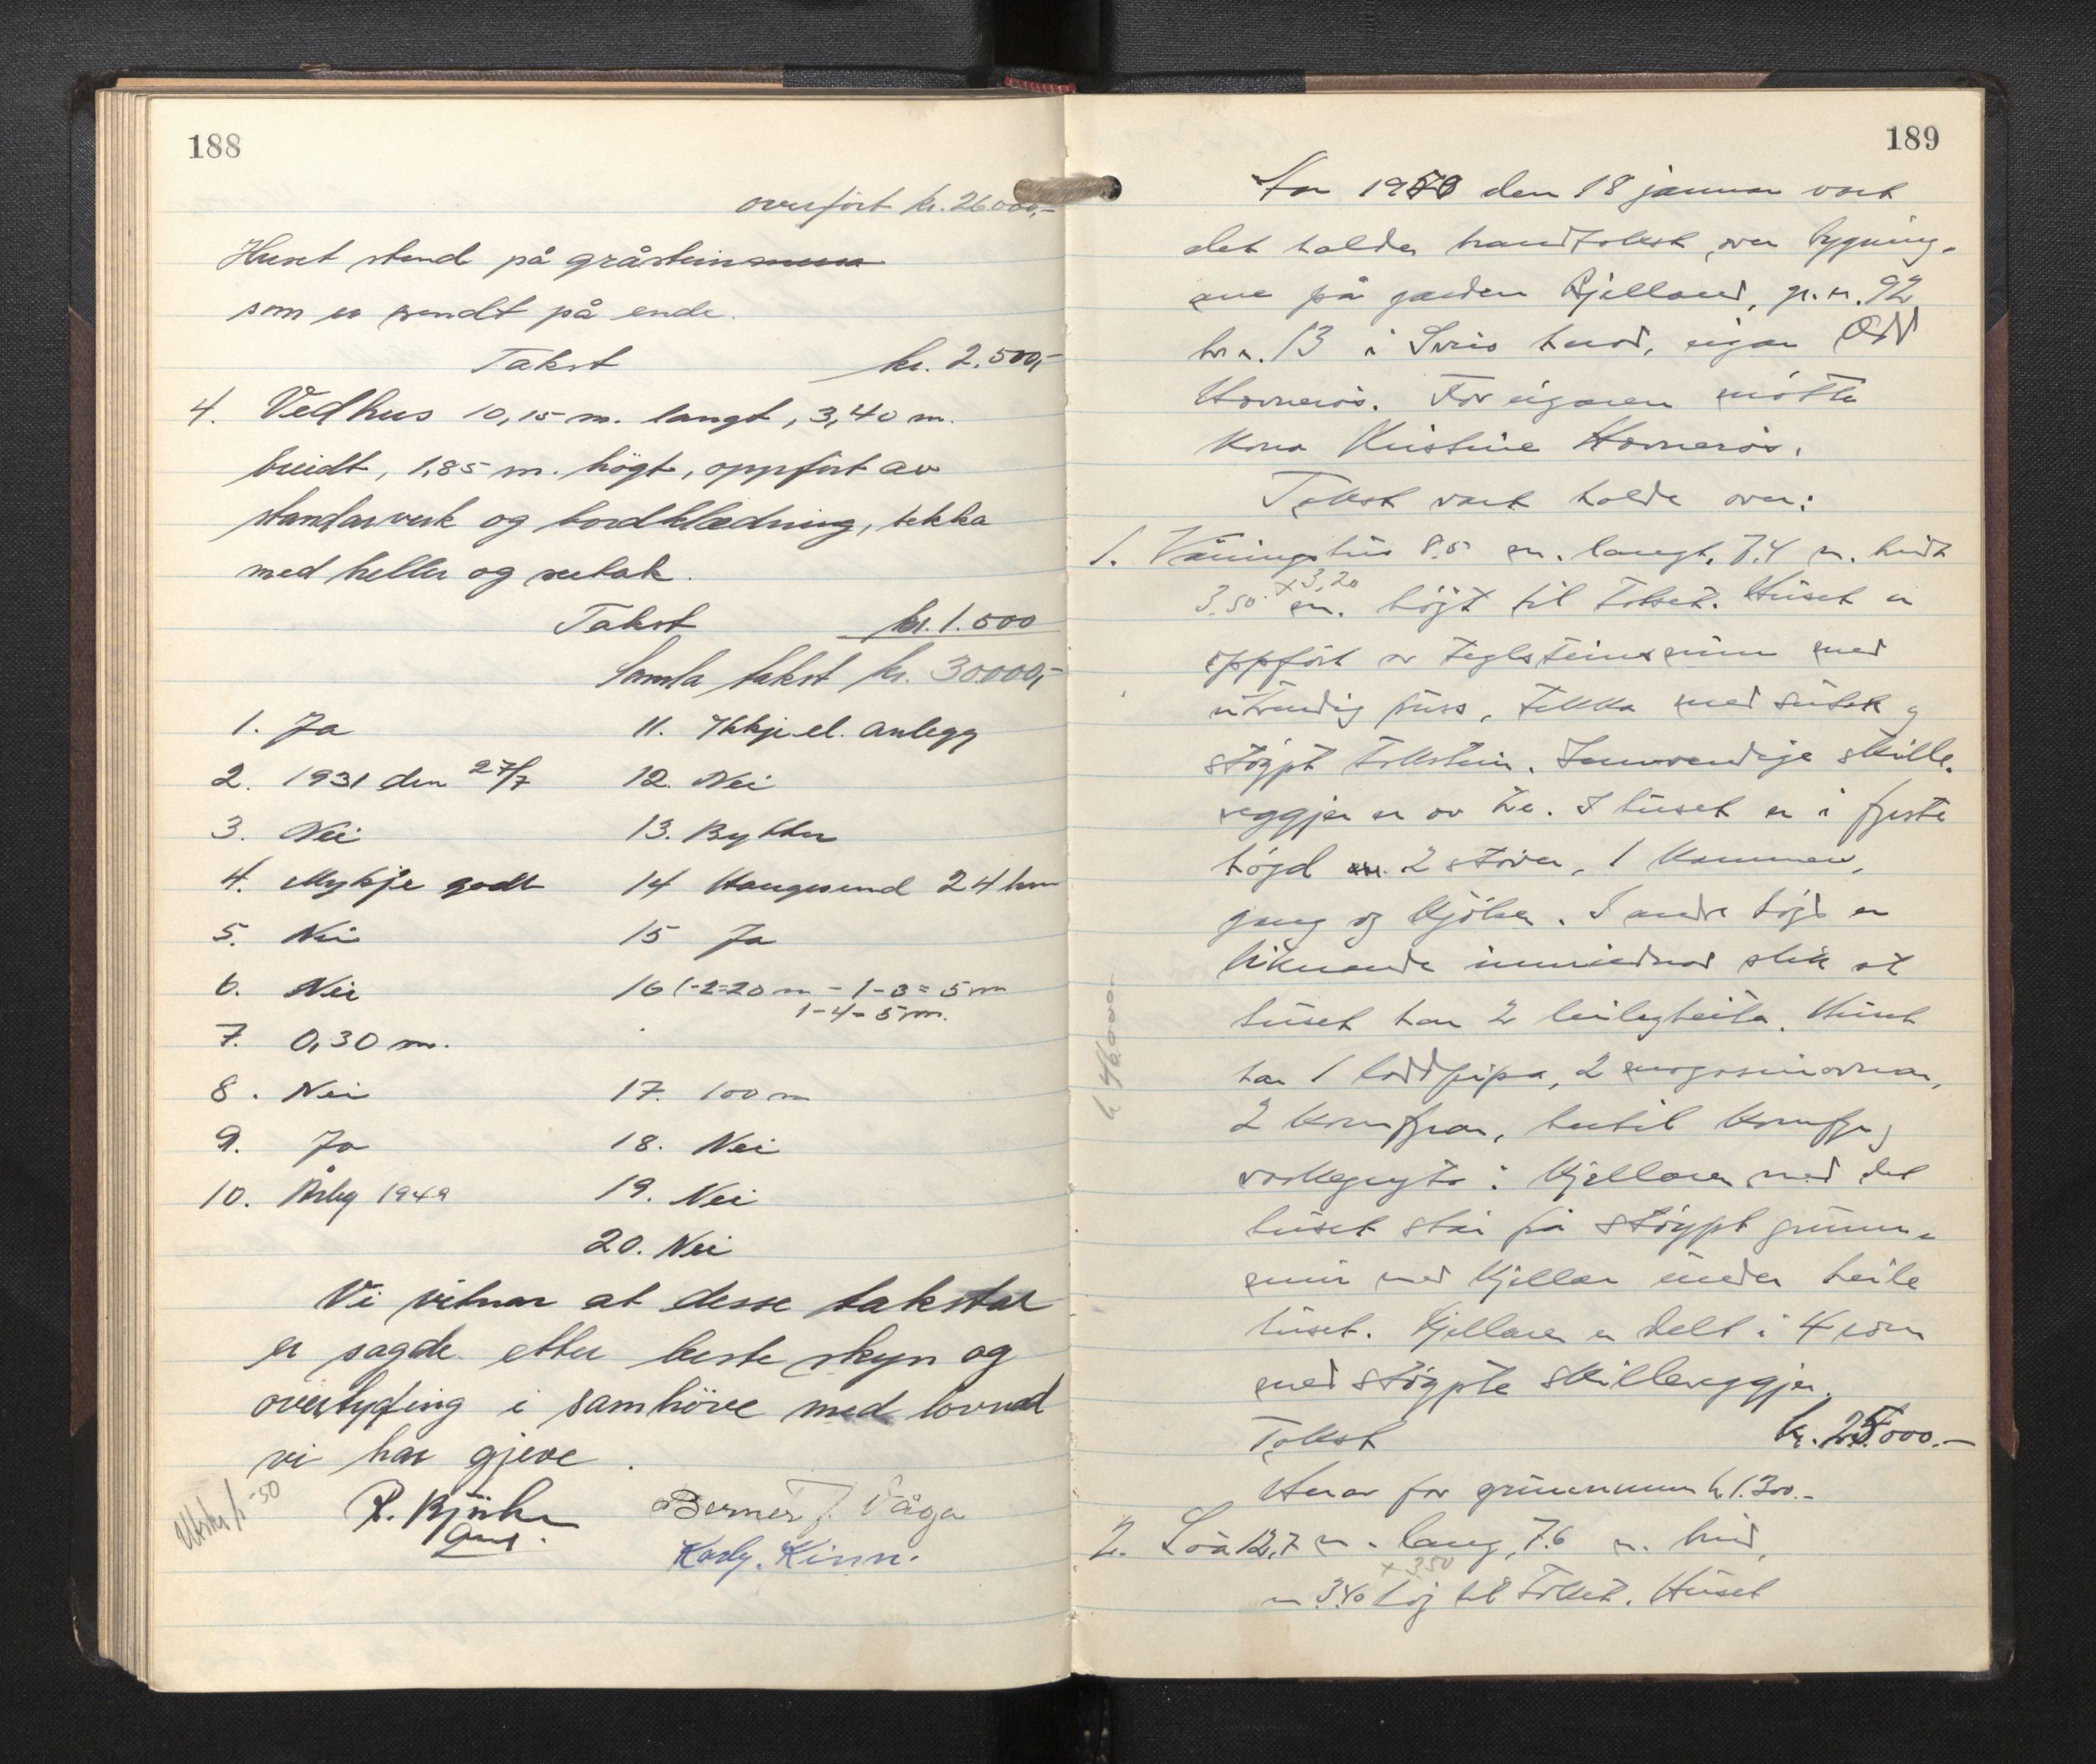 188
overført kr. 26000,-
Huset stend på gråsteinsmur
som er pendt på ende.
Takst kr. 2.500,-
4. Vedhus 10,15 m. langt, 3,40 m.
breidt, 1,85 m. högt, oppfört av
standarverk og bordklædning, tekka
med heller og sutak.
Takst kr. 1.500
Samla takst kr. 30000,-
1. Ja 11. Ikkje el. anlegg
2. 1931 den 27/7 12. Nei
3. Nei 13. Bytter
4. Mykje godt 14 Haugesund 24 km
5. Nei 15 Ja
6. Nei 16 1-2=20 m - 1-3=5 m
1-4=5 m.
7. 0,30 m.
8. Nei 17. 100 m
9. Ja 18. Nei
10. Årleg 1949 19. Nei
20. Nei
Vi vitnar at desse takstar
er sagde etter beste skyn og
overtyding i samhöve med lovnad
vi har gjeve.
Utskr. 1/-50
R. Bjørke Berner J. Våga
Karly. Kinn.
189
År 1950 den 18 januar vart
det halde brandtakst over bygning-
ane på garden Kjelland, gr. n. 92
br. n. 13 i Sveio herad, eigar Odd
Hovnerös. For eigaren møtte
kona Kristine Hovnerös.
Takst vart halde over:
1. Våningshus 8.5 m. langt, 7.4 m. breidt
x 3,20
3.50 m. högt til taket. Huset er
oppfört av teglsteinsmur med
utvendig puss, tekka med sutak og
stöypt takstein. Innvendige skille-
veggjer er av tre. I huset er i fyrste
högd 2 stover, 1 kammer,
gang og kjöken. I andre högd er
liknande innreidnad slik at
huset har 2 leilegheita. Huset
har 1 loddpipa, 2 magasinovnar,
2 komfyrar, hertil komfyr og
vaskegryte i kjellaren med det
huset står på stöypt grunn-
mur med kjellar under heile
huset. Kjellaren er delt i 4 rom
med stöypte skilleveggjer.
Takst kr. 25000.-
Herav for grunnmur kr. 1.300.-
kr. 46.000.-
2. Löa 12,7 m. lang, 7.6 m. breid,
x 3.50
m 3.40 høg til taket. Huset